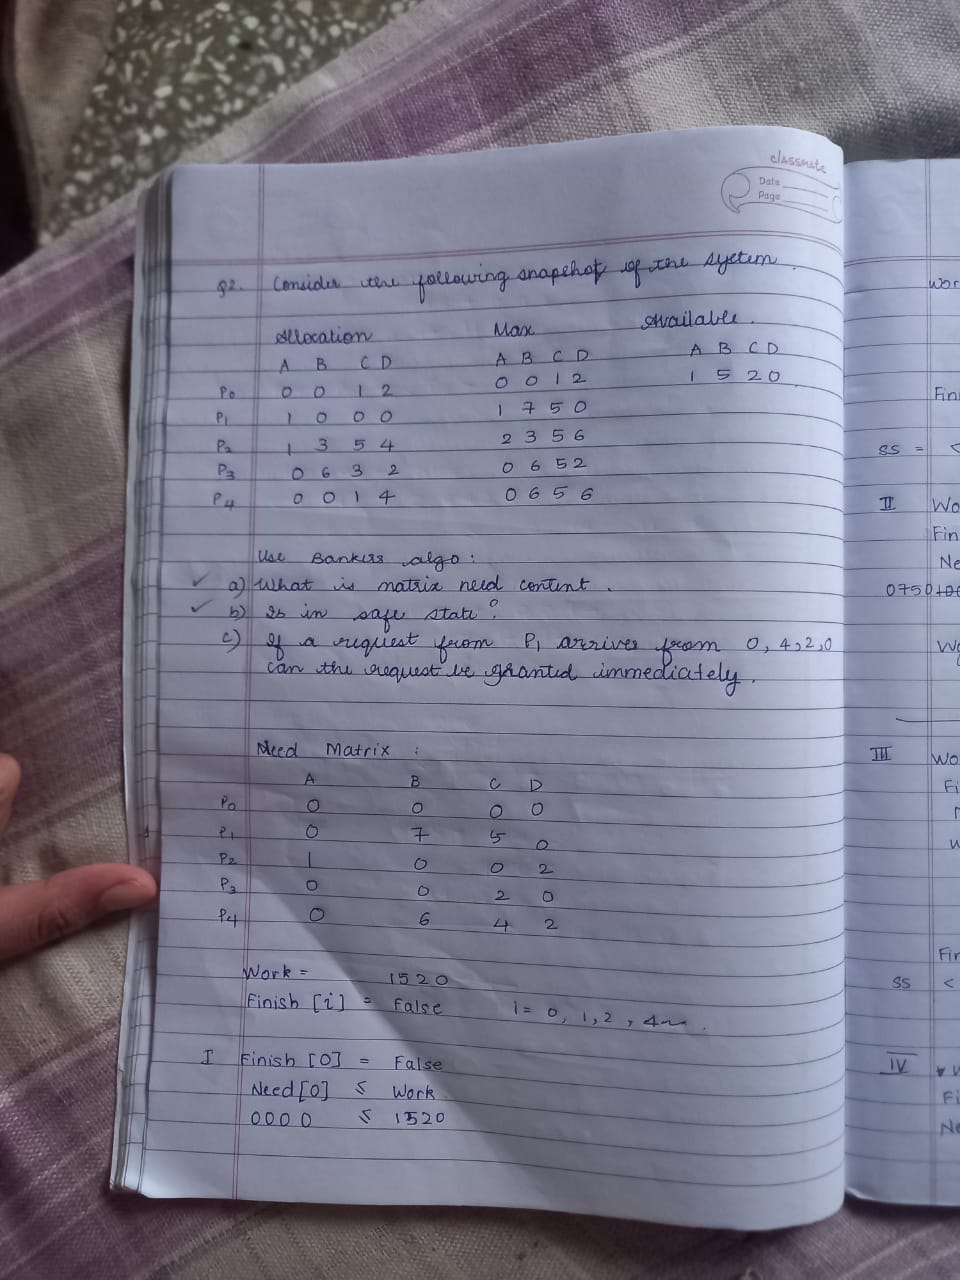 classmate
Date
Page
Q2. Consider the following snapshot of the system.
Allocation Max Available.
A B C D A B C D A B C D
P0 0 0 1 2 0 0 1 2 1 5 2 0
P1 1 0 0 0 1 7 5 0
P2 1 3 5 4 2 3 5 6
P3 0 6 3 2 0 6 5 2
P4 0 0 1 4 0 6 5 6
Use Bankers algo :
✓ a) What is matrix need content.
✓ b) Is in safe state?
c) If a request from P1 arrives from 0, 4, 2, 0
can the request be granted immediately.
Need Matrix :
A B C D
P0 0 0 0 0
P1 0 7 5 0
P2 1 0 0 2
P3 0 0 2 0
P4 0 6 4 2
Work = 1520
Finish [i] = False i = 0, 1, 2, 4
I Finish [0] = False
Need [0] ≤ Work
0000 ≤ 1520
SS =
II
0750
III
SS <
IV